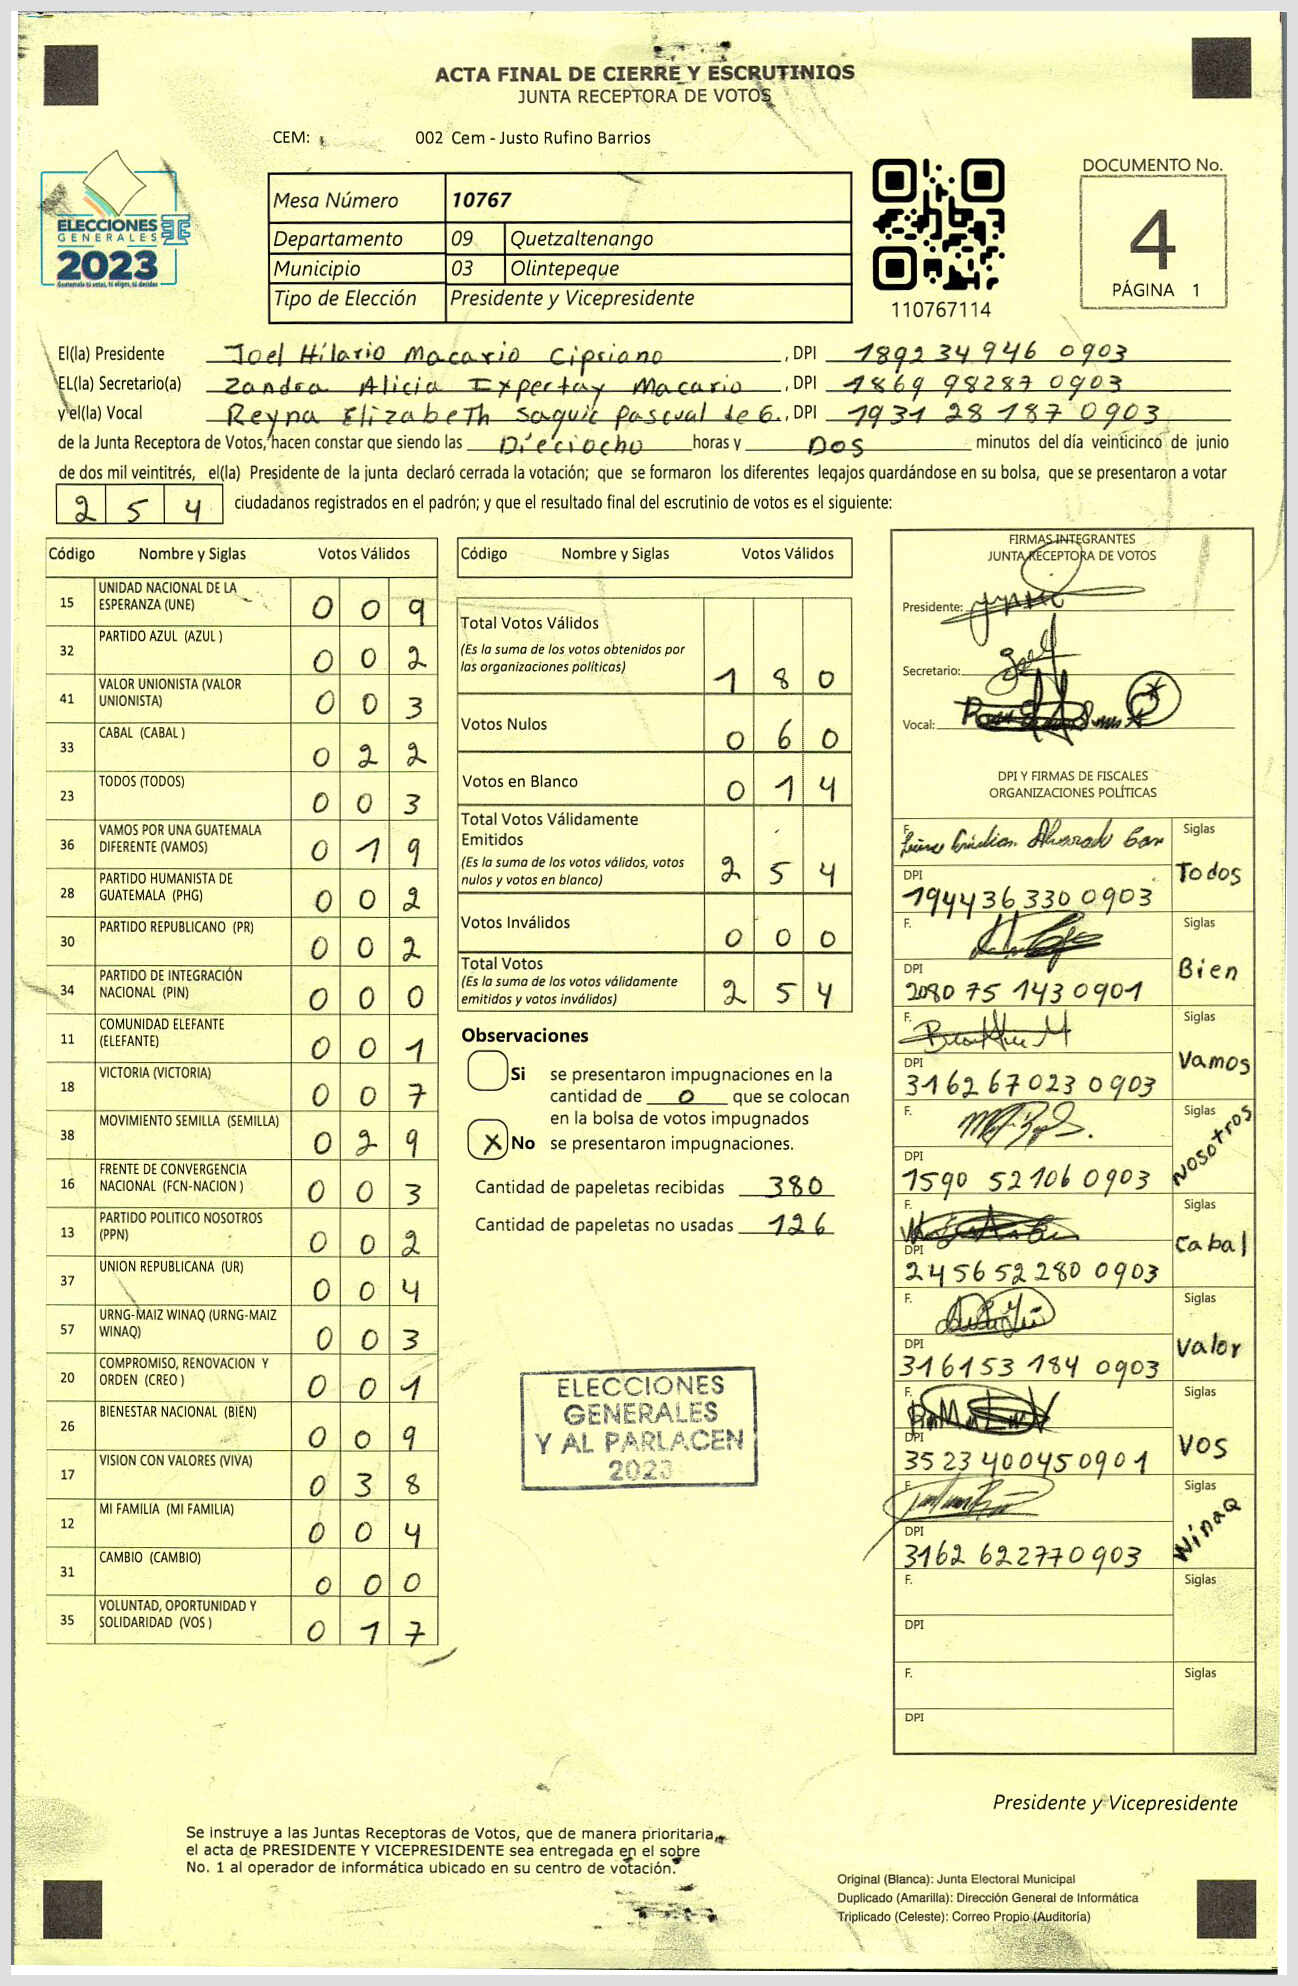 ACTA FINAL DE CIERRE Y ESCRUTINIOS
JUNTA RECEPTORA DE VOTOS
CEM: 002 Cem - Justo Rufino Barrios
ELECCIONES
GENERALES
2023
Guatemala tú votas, tú eliges, tú decides
Mesa Número 10767
Departamento 09 Quetzaltenango
Municipio 03 Olintepeque
Tipo de Elección Presidente y Vicepresidente
110767114
DOCUMENTO No.
4
PÁGINA 1
El(la) Presidente Joel Hilario Macario Cipriano, DPI 1892 34946 0903
EL(la) Secretario(a) Zandra Alicia Ixpertay Macario, DPI 1869 98287 0903
y el(la) Vocal Reyna Elizabeth Saquic Pascual de G., DPI 1931 28187 0903
de la Junta Receptora de Votos, hacen constar que siendo las Dieciocho horas y Dos minutos del día veinticinco de junio
de dos mil veintitrés, el(la) Presidente de la junta declaró cerrada la votación; que se formaron los diferentes legajos guardándose en su bolsa, que se presentaron a votar
254 ciudadanos registrados en el padrón; y que el resultado final del escrutinio de votos es el siguiente:
Código Nombre y Siglas Votos Válidos
15 UNIDAD NACIONAL DE LA ESPERANZA (UNE) 009
32 PARTIDO AZUL (AZUL ) 002
41 VALOR UNIONISTA (VALOR UNIONISTA) 003
33 CABAL (CABAL ) 022
23 TODOS (TODOS) 003
36 VAMOS POR UNA GUATEMALA DIFERENTE (VAMOS) 019
28 PARTIDO HUMANISTA DE GUATEMALA (PHG) 002
30 PARTIDO REPUBLICANO (PR) 002
34 PARTIDO DE INTEGRACIÓN NACIONAL (PIN) 000
11 COMUNIDAD ELEFANTE (ELEFANTE) 001
18 VICTORIA (VICTORIA) 007
38 MOVIMIENTO SEMILLA (SEMILLA) 029
16 FRENTE DE CONVERGENCIA NACIONAL (FCN-NACION ) 003
13 PARTIDO POLITICO NOSOTROS (PPN) 002
37 UNION REPUBLICANA (UR) 004
57 URNG-MAIZ WINAQ (URNG-MAIZ WINAQ) 003
20 COMPROMISO, RENOVACION Y ORDEN (CREO ) 001
26 BIENESTAR NACIONAL (BIEN) 009
17 VISION CON VALORES (VIVA) 038
12 MI FAMILIA (MI FAMILIA) 004
31 CAMBIO (CAMBIO) 000
35 VOLUNTAD, OPORTUNIDAD Y SOLIDARIDAD (VOS ) 017
Código Nombre y Siglas Votos Válidos
Total Votos Válidos
(Es la suma de los votos obtenidos por
las organizaciones políticas) 180
Votos Nulos 060
Votos en Blanco 014
Total Votos Válidamente
Emitidos
(Es la suma de los votos válidos, votos
nulos y votos en blanco) 254
Votos Inválidos 000
Total Votos
(Es la suma de los votos válidamente
emitidos y votos inválidos) 254
Observaciones
Si se presentaron impugnaciones en la
cantidad de 0 que se colocan
en la bolsa de votos impugnados
X No se presentaron impugnaciones.
Cantidad de papeletas recibidas 380
Cantidad de papeletas no usadas 126
ELECCIONES
GENERALES
Y AL PARLACEN
2023
FIRMAS INTEGRANTES
JUNTA RECEPTORA DE VOTOS
Presidente:
Secretario:
Vocal:
DPI Y FIRMAS DE FISCALES
ORGANIZACIONES POLÍTICAS
F. Siglas Todos
DPI 1944 36330 0903
F. Siglas Bien
DPI 2080 75 143 0901
F. Siglas Vamos
DPI 3162 67023 0903
F. Siglas Nosotros
DPI 1590 52106 0903
F. Siglas Cabal
DPI 2456 52280 0903
F. Siglas Valor
DPI 3161 53 184 0903
F. Siglas VOS
DPI 3523 40045 0901
F. Siglas Winaq
DPI 3162 62277 0903
F. Siglas
DPI
F. Siglas
DPI
Presidente y Vicepresidente
Se instruye a las Juntas Receptoras de Votos, que de manera prioritaria,
el acta de PRESIDENTE Y VICEPRESIDENTE sea entregada en el sobre
No. 1 al operador de informática ubicado en su centro de votación.
Original (Blanca): Junta Electoral Municipal
Duplicado (Amarilla): Dirección General de Informática
Triplicado (Celeste): Correo Propio (Auditoría)